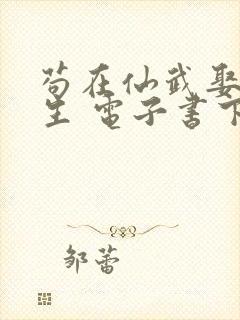 苟在仙武娶
生 電子書下
邹蕾